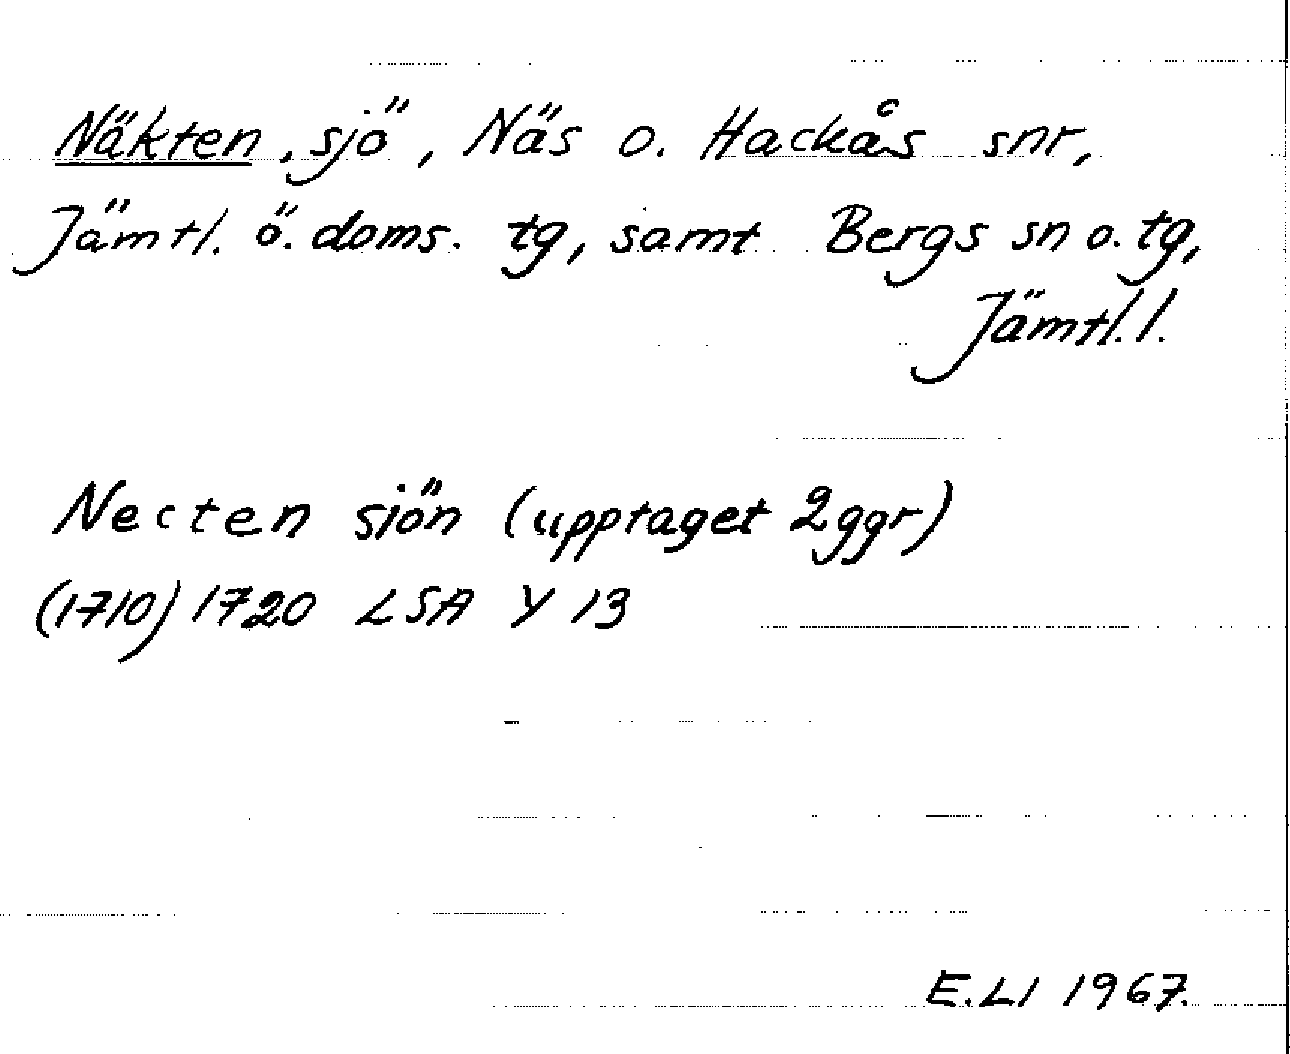 Näkten, sjö, Näs o. Hackås snr,
Jämtl. ö. doms. tg, samt Bergs sn o. tg,
Jämtl. l.
Necten siön (upptaget 2ggr)
(1710) 1720 LSA Y 13
E.LI 1967.